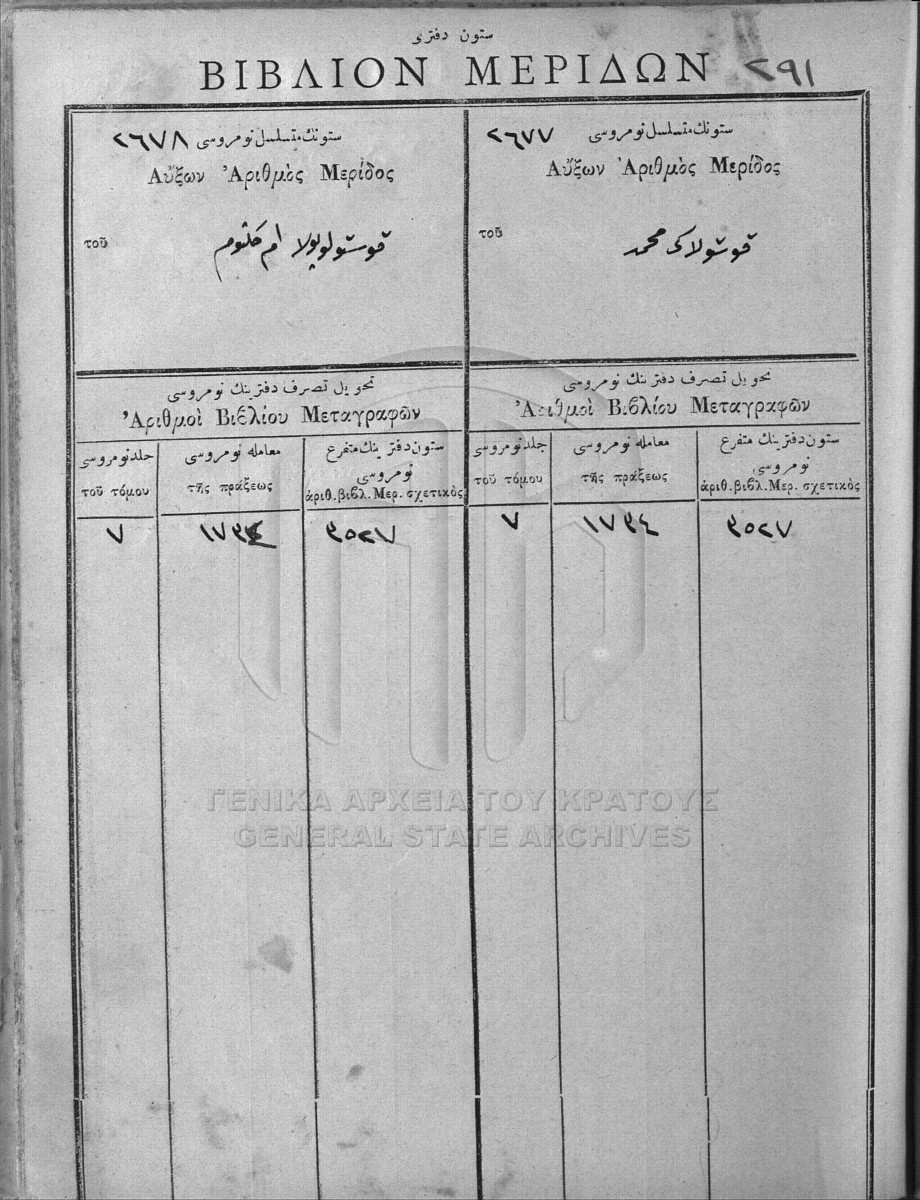 ستون دفتری
ΒΙΒΛΙΟΝ ΜΕΡΙΔΩΝ ٢٩١
ستونك متسلسل نومروسی ٢٦٧٧
Αὔξων Ἀριθμὸς Μερίδος
τοῦ قوستولاكی محمد
ستونك متسلسل نومروسی ٢٦٧٨
Αὔξων Ἀριθμὸς Μερίδος
τοῦ قوستولوپولا ام كلثوم
تحویل تصرف دفترینك نومروسی
Ἀριθμοὶ Βιβλίου Μεταγραφῶν
جلد نومروسی
τοῦ τόμου
معامله نومروسی
τῆς πράξεως
ستون دفترینك متفرع
نومروسی
ἀριθ. βιβλ. Μερ. σχετικὸς
٧ ١٧٣٤ ٣٥٢٧
تحویل تصرف دفترینك نومروسی
Ἀριθμοὶ Βιβλίου Μεταγραφῶν
جلد نومروسی
τοῦ τόμου
معامله نومروسی
τῆς πράξεως
ستون دفترینك متفرع
نومروسی
ἀριθ. βιβλ. Μερ. σχετικὸς
٧ ١٧٣٤ ٣٥٢٧
ΓΕΝΙΚΑ ΑΡΧΕΙΑ ΤΟΥ ΚΡΑΤΟΥΣ
GENERAL STATE ARCHIVES